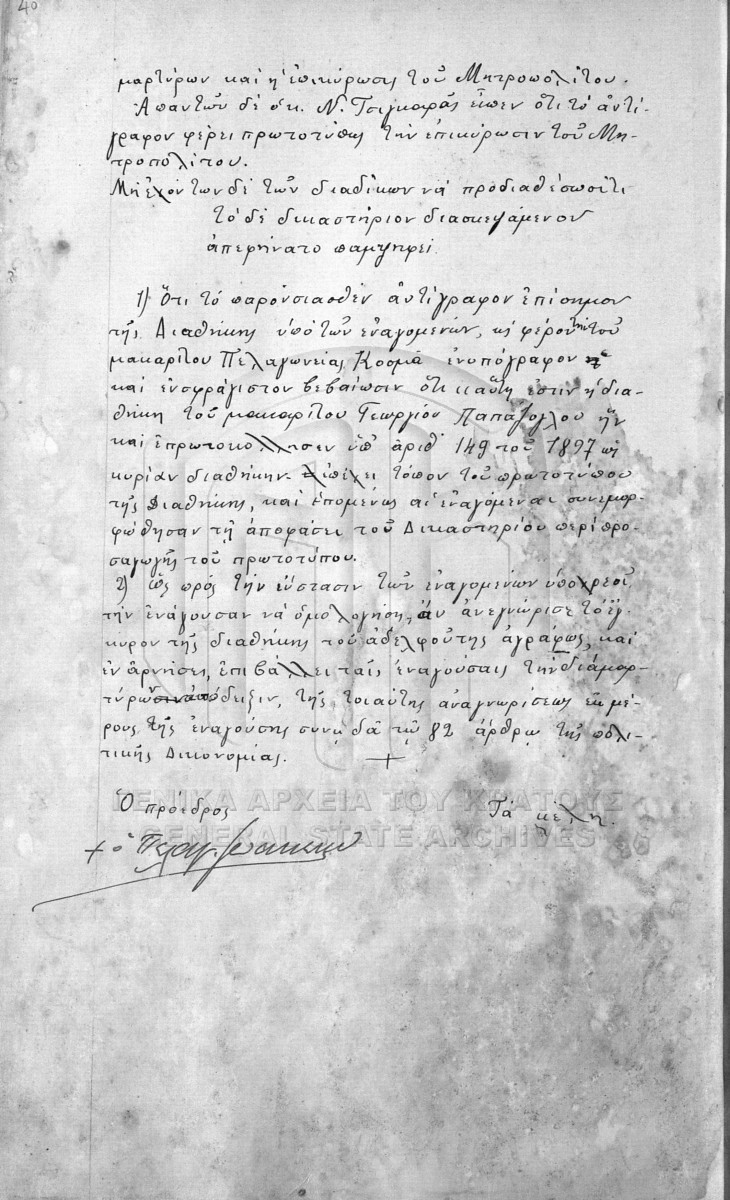 40
μαρτύρων καὶ ἡ ἐπικύρωσις τοῦ Μητροπολίτου.
Ἀπαντῶν δὲ ὁ κ. Ν. Τσιγκαρᾶς εἶπεν ὅτι τὸ ἀντί-
γραφον φέρει πρωτοτύπως τὴν ἐπικύρωσιν τοῦ Μη-
τροπολίτου.
Μὴ ἐχόντων δὲ τῶν διαδίκων νὰ προσδιαθέσωσί τι
τὸ δὲ δικαστήριον διασκεψάμενον
ἀπεφήνατο παμψηφεί
1) Ὅτι τὸ παρουσιασθὲν ἀντίγραφον ἐπίσημον
τῆς Διαθήκης ὑπὸ τῶν ἐναγομένων, ὡς φέρον τὴν τοῦ
μακαρίτου Πελαγωνείας Κοσμᾶ ἐνυπόγραφον
καὶ ἐνσφράγιστον βεβαίωσιν ὅτι αὕτη ἐστὶν ἡ δια-
θήκη τοῦ μακαρίτου Γεωργίου Παπάζογλου ἣν
καὶ ἐπρωτοκόλλησεν ὑπ' ἀριθ 149 τοῦ 1897 ὡς
κυρίαν διαθήκην ἐπέχει τόπον τοῦ πρωτοτύπου
τῆς Διαθήκης, καὶ ἑπομένως αἱ ἐναγόμεναι συνεμορ-
φώθησαν τῇ ἀποφάσει τοῦ Δικαστηρίου περὶ προ-
σαγωγῆς τοῦ πρωτοτύπου.
2) Ὡς πρὸς τὴν ἔνστασιν τῶν ἐναγομένων ὑποχρεοῖ
τὴν ἐνάγουσαν νὰ ὁμολογήσῃ, ἂν ἀνεγνώρισε τὸ ἔγ-
κυρον τῆς διαθήκης τοῦ ἀδελφοῦ της ἀγράφως, καὶ
ἐν ἀρνήσει, ἐπιβάλλει ταῖς ἐναγούσαις τὴν διὰ μαρ-
τύρων ἀπόδειξιν, τῆς τοιαύτης ἀναγνωρίσεως ἐκ μέ-
ρους τῆς ἐναγούσης συνῳδὰ τῷ 82 ἄρθρῳ τῆς πολι-
τικῆς Δικονομίας.
Ὁ πρόεδρος Τὰ μέλη.
+ ὁ
ΓΕΝΙΚΑ ΑΡΧΕΙΑ ΤΟΥ ΚΡΑΤΟΥΣ
GENERAL STATE ARCHIVES